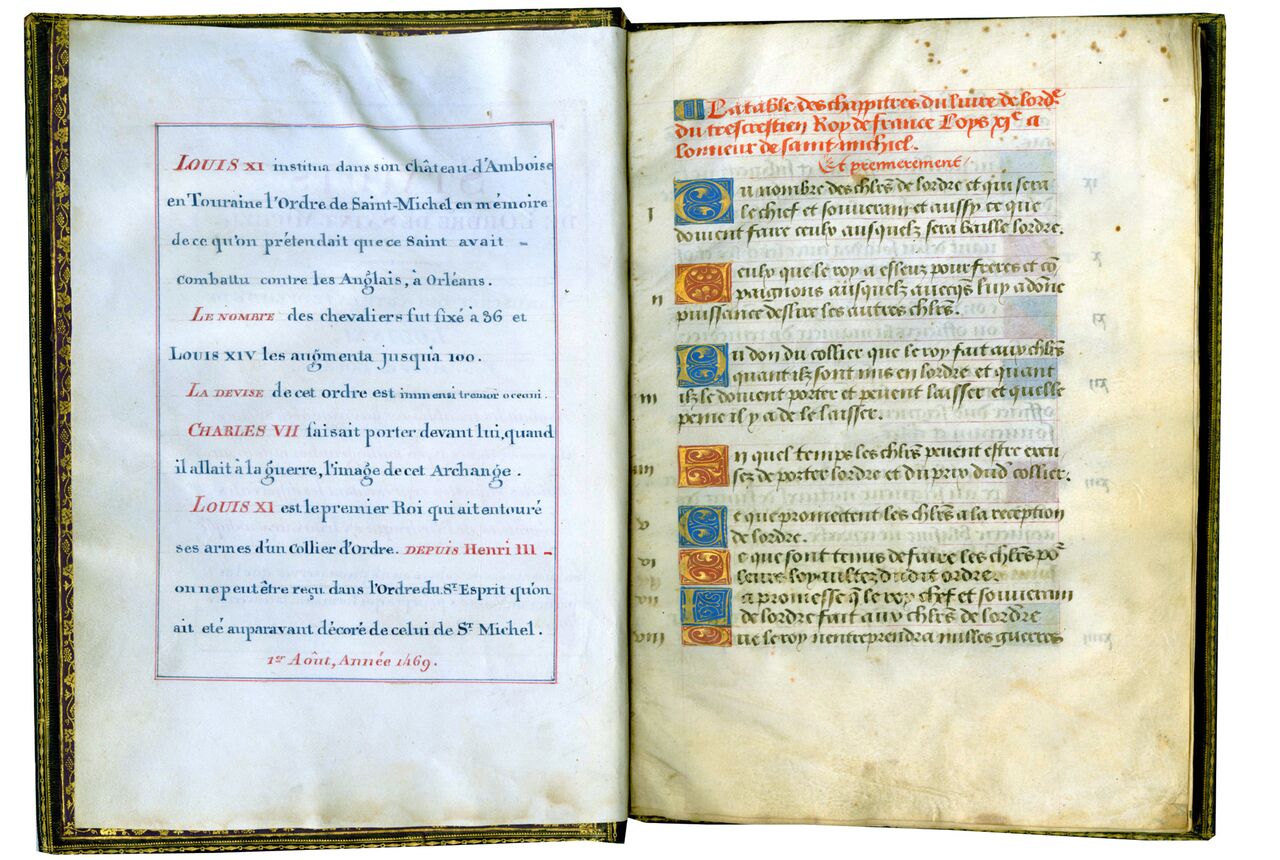 LOUIS XI institua dans son château d'Amboise
en Touraine l'Ordre de Saint-Michel en mémoire
de ce qu'on prétendait que ce Saint avait -
combattu contre les Anglais, à Orléans.
LE NOMBRE des chevaliers fut fixé à 36 et
LOUIS XIV les augmenta jusqu'à 100.
LA DEVISE de cet ordre est immensi tremor oceani.
CHARLES VII faisait porter devant lui, quand
il allait à la guerre, l'image de cet Archange.
LOUIS XI est le premier Roi qui ait entouré
ses armes d'un Collier d'Ordre. DEPUIS Henri III -
on ne peut être reçu dans l'Ordre du St. Esprit qu'on
ait eté auparavant décoré de celui de St. Michel.
1er Août, Année 1469.
La table des chappitres du livre de lordre
du trescrestien Roy de france Loys xje a
lonneur de saint michiel.
Et premierement
I Du nombre des chlrs de lordre et qui sera
le chief et souverain et aussy ce que
doivent faire ceulx ausquelz sera baille lordre.
II Ceulx que le roy a esleuz pour freres et cō
paignons ausquelz avecqs luy a donne
puissance deslire les autres chlrs.
III Du don du collier que le roy fait aux chlrs
quant ilz sont mis en lordre et quant
ilz le doivent porter et pevent laisser et quelle
peine il y a de le laisser.
IIII En quel temps les chlrs pevent estre excu
sez de porter lordre et du prix dud collier.
V Ce que promectent les chlrs a la reception
de lordre.
VI Ce que sont tenus de faire les chlrs por
leurs loyaultez dudit ordre
VII La promesse q̄ le roy chef et souverain
de lordre fait aux chlrs de lordre
VIII Que le roy nentreprendra nulles guerres